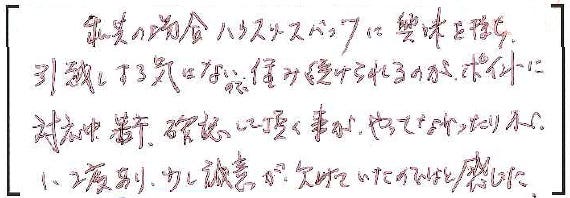 私共の場合ハウスメスペックに興味を持ち、
引越しする気はない為住み続けられるのが、ポイントに
対応中 若干、確認して頂く事が、やってなかったりが、
1、2度あり、少し誠意が、欠けていたのではと感じた。